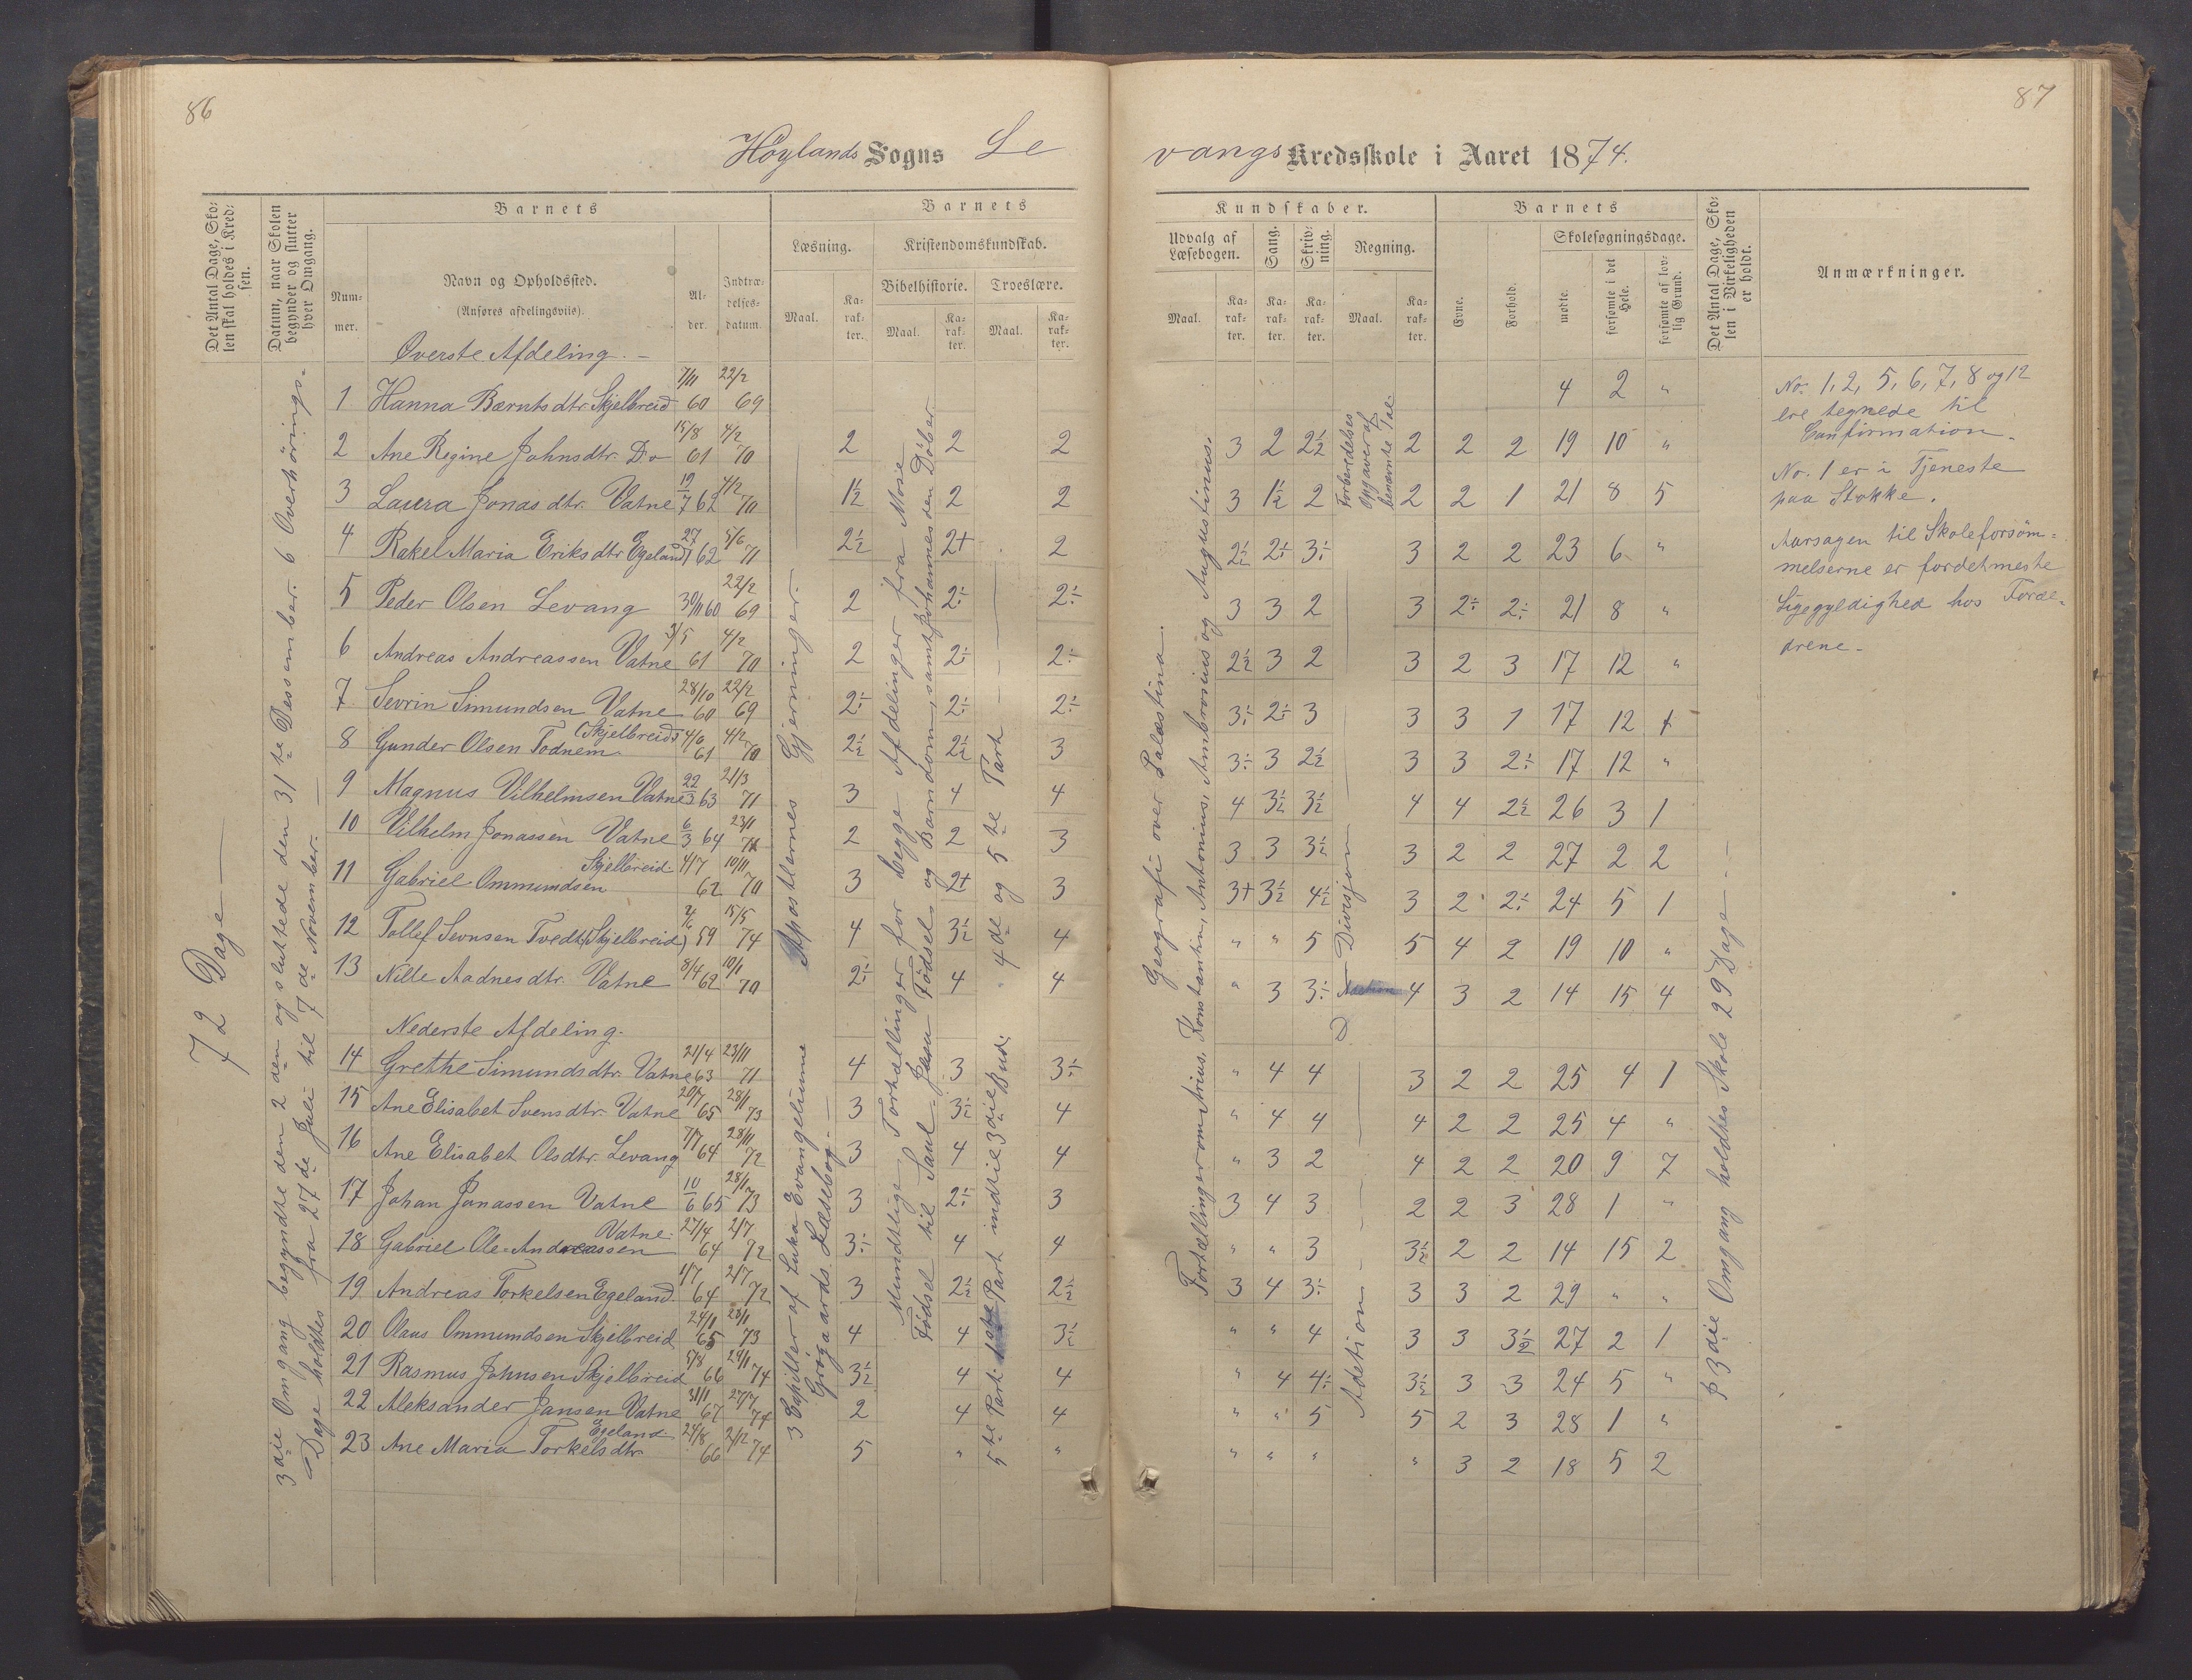 86
87
Höylands Sogns Le
vangs Kredsskole i Aaret 1874.
Det Antal Dage, Sko-
len skal holdes i Kred-
sen.
Datum, naar Skolen
begynder og slutter
hver Omgang.
Barnets
Num-
mer.
Navn og Opholdssted.
(Anføres afdelingsviis).
Al-
der.
Indtræ-
delses-
datum.
Barnets
Læsning.
Kristendomskundskab.
Bibelhistorie. Troeslære.
Maal.
Ka-
rak-
ter.
Maal.
Ka-
rak-
ter.
Maal.
Ka-
rak-
ter.
Kundskaber.
Udvalg af
Læsebogen.
Sang.
Skriv-
ning.
Regning.
Maal.
Ka-
rak-
ter.
Ka-
rak-
ter.
Ka-
rak-
ter.
Maal.
Ka-
rak-
ter.
Barnets
Evne.
Forhold.
Skolesøgningsdage.
mødte.
forsømte i det
Hele.
forsømte af lov-
lig Grund.
Det Antal Dage, Sko-
len i Virkeligheden
er holdt.
Anmærkninger.
72 Dage
3die Omgang begyndte den 2den og sluttede den 31te Dessember. 6 Overhörings-
Dage holdtes fra 27de Juli til 7de November.
Øverste Afdeling.
1 Hanna Bærntsdtr. Skjelbreid 7/11 60 22/2 69 4 2 "
2 Ane Regine Johnsdtr. Do 15/8 61 4/2 70 2 2 2 3 2 2½ 2 2 2 19 10 "
3 Laura Jonasdtr. Vatne 12/7 62 4/2 70 1½ 2 2 3 1½ 2 2 2 1 21 8 5
4 Rakel Maria Eriksdtr Egeland 27/1 62 5/6 71 2½ 2+ 2 2½ 2÷ 3÷ 3 2 2 23 6 "
5 Peder Olsen Levang 30/11 60 22/2 69 2 2÷ 2÷ 3 3 2 3 2÷ 2÷ 21 8 "
6 Andreas Andreassen Vatne 3/5 61 4/2 70 2 2÷ 2÷ 2½ 3 2 3 2 3 17 12 "
7 Sevrin Simundsen Vatne 28/10 60 22/2 69 2÷ 2÷ 2÷ 3÷ 2÷ 3 3 3 1 17 12 1
8 Gunder Olsen Todnem (Skjelbreid) 4/6 61 4/2 70 2½ 2½ 3 3÷ 3 2½ 3 3 2÷ 17 12 "
9 Magnus Vilhelmsen Vatne 22/3 63 21/3 71 3 4 4 4 3½ 3½ 4 4 2½ 26 3 1
10 Vilhelm Jonassen Vatne 6/3 64 23/1 71 2 2 3 3 3 3½ 3 2 2 27 2 2
11 Gabriel Ommundsen Skjelbreid 4/7 62 10/11 70 3 2+ 3 3+ 3½ 4½ 3 2 2÷ 24 5 1
12 Tollef Sevnsen Tvedt (Skjelbreid) 59 15/5 74 4 3½ 4 " " 5 5 4 2 19 10 "
13 Nille Aadnesdtr. Vatne 8/4 62 10/1 70 2÷ 4 4 " 3 3÷ 4 3 2 14 15 4
Nederste Afdeling.
14 Grethe Simundsdtr. Vatne 21/4 63 23/11 71 4 3 3÷ " 4 4 3 2 2 25 4 1
15 Ane Elisabet Svensdtr. Vatne 20/7 65 28/1 73 3 3½ 4 " 4 4 4 2 2 25 4 "
16 Ane Elisabet Olsdtr. Levang 7/7 64 28/11 72 3 4 4 " 3 2 4 2 2 20 9 7
17 Johan Jonassen Vatne 10/6 65 28/1 73 3 2÷ 3 3 4 3 2 2 3 28 1 "
18 Gabriel Ole Andreassen Vatne 27/4 64 2/7 72 3÷ 4 4 " " 3 3½ 2 2 14 15 2
19 Andreas Torkelsen Egeland 1/7 64 2/7 72 3 2½ 2½ 3 4 3÷ 3 3 2 29 " "
20 Olaus Ommundsen Skjelbreid 24/11 65 28/1 73 4 4 3½ " " 4 3 3 3½ 27 2 1
21 Rasmus Johnsen Skjelbreid 5/8 66 29/1 74 3½ 4 4 " 4 4÷ 3½ 3 3 24 5 "
22 Aleksander Jansen Vatne 31/1 67 27/7 74 2 4 4 " " 5 5 2 3 28 1 "
23 Ane Maria Torkelsdtr. Egeland 24/8 66 2/12 74 5 " " " " " " 3 2 18 5 2
3 Capitler af Luka Evangeliume Apostlernes Gjerninger.
Grøgaards Læsebog.
Mundtlige Fortællinger for begge Afdelinger fra Mose
Fødsel til Saul. Jesu Fødsel og Barndom, samt Johannes den Döber
5te Part. 1ste Part indtil 3die Bud. 4de og 5te Part
Geografi over Palæstina.
Fortællinger om Arius, Konstantin, Antonius, Ambrosius og Augustinus.
Forberedelses
Opgaver af
benævnte Tal.
Divisjon
Adetion
på 3die Omgang holdtes Skole 29 Dage
No. 1, 2, 5, 6, 7, 8 og 12
ere tegnede til
Confirmation.
No. 1 er i Tjeneste
paa Stokke.
Aarsagen til Skoleforsöm-
melserne er fordetmeste
Ligegyldighed hos Foræl-
drene.